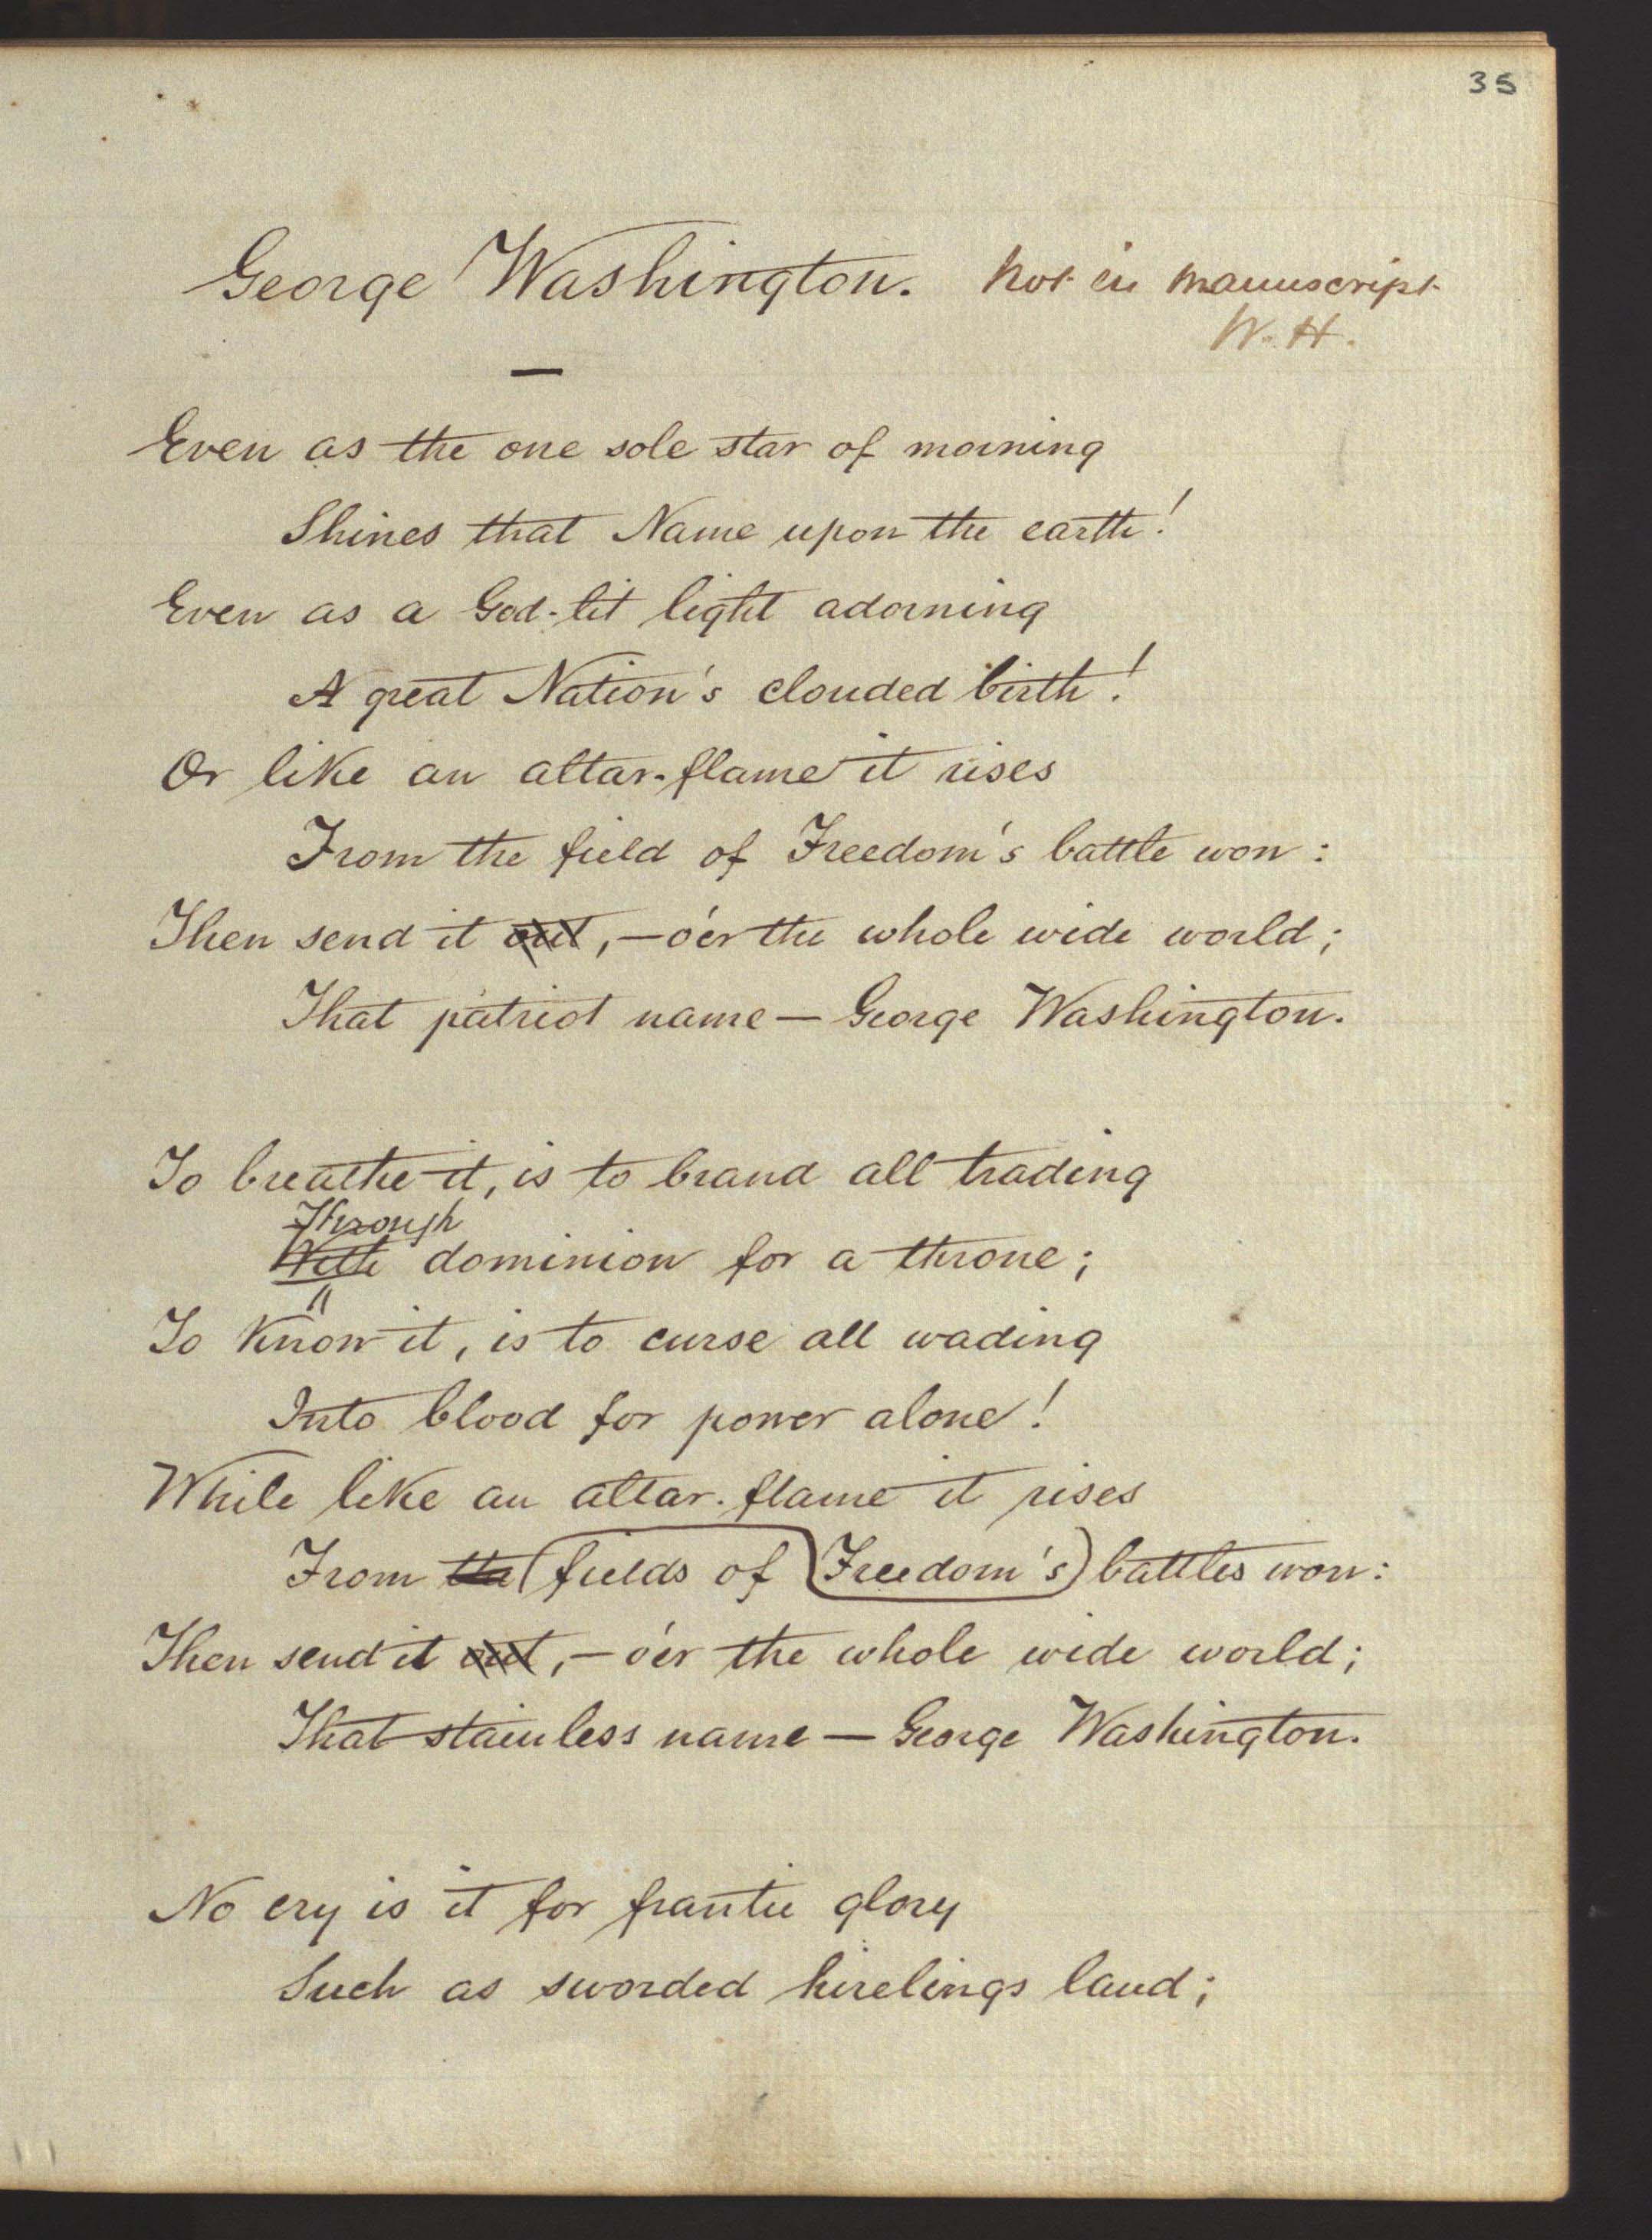 35
George Washington. Not in manuscript
W. H.
Even as the one sole star of morning
Shines that Name upon the earth!
Even as a God-lit light adorning
A great Nation's clouded birth!
Or like an altar-flame it rises
From the field of Freedom's battle won:
Then send it out, — o'er the whole wide world;
That patriot name — George Washington.
To breathe it, is to brand all trading
Through
With dominion for a throne;
To know it, is to curse all wading
Into blood for power alone!
While like an altar-flame it rises
From the fields of Freedom's battles won:
Then send it out, — o'er the whole wide world;
That stainless name — George Washington.
No cry is it for frantic glory
Such as sworded hirelings laud;